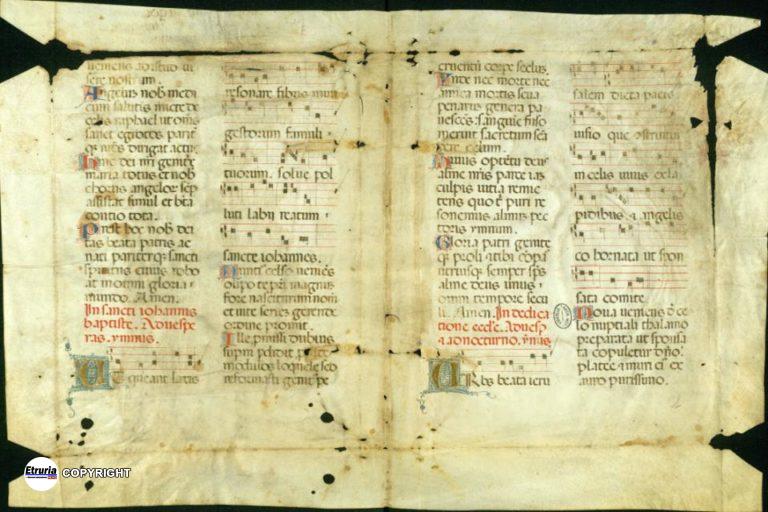 sere nostrum.
Angelus nob medi
cus salutis mitte de
celis raphael ut om̅s
sanet egrotos parit
q̅ n̅ros dirigat actus
maria totus et nob
chorus angelor̅ sep
assistat simul et bea
contio tota.
Prestet hoc nob dei
tas beata patris ac
nati pariterq̅ sancti
spiritus cuius rebo
at in omni gloria
mundo. Amen.
In sancti iohannis
baptiste. Ad vespe
ras. ymnus.
UT queant laxis
resonare fibris mira
gestorum famuli
tuorum. solue pol
luti labii reatum
sancte iohannes.
Nuntius celso ueniens
olipo te pr̅i magnum
fore nasciturum nom̅
et uite seriem gerende
ordine promit.
Ille promissi dubius
superni perdidit
modulos loquele sed
reformasti genit pe
cruentu̅ corpe seclus
Unde nec morte nec
amica mortis seua
penarus genera pa
Huius optentu deus
alme n̅ris parce ia̅
culpis uitia remic
tens quo t̅ puri re
sonemus almis pec
toris ymnum.
Gloria patri genite
q̅ proli et tibi co̅par
utriusq̅ semper sp̅s
alme deus unus
omni tempore secu
li. Amen. In dedica
tione eccl̅e. Ad vesp̅
& ad nocturno. ym̅s.
URbs beata ieru
salem dicta pacis
uisio que construitur
in celis uiuis ex la
pidibus & angelis
co hornata ut spon
sata comite
Noua ueniens de̅ ce
lo nuptiali thalamo
preparata ut sponsa
ta copuletur d̅n̅o.
platee & muri ei̅ ex
auro purissimo.
2
Etruria
COPYRIGHT